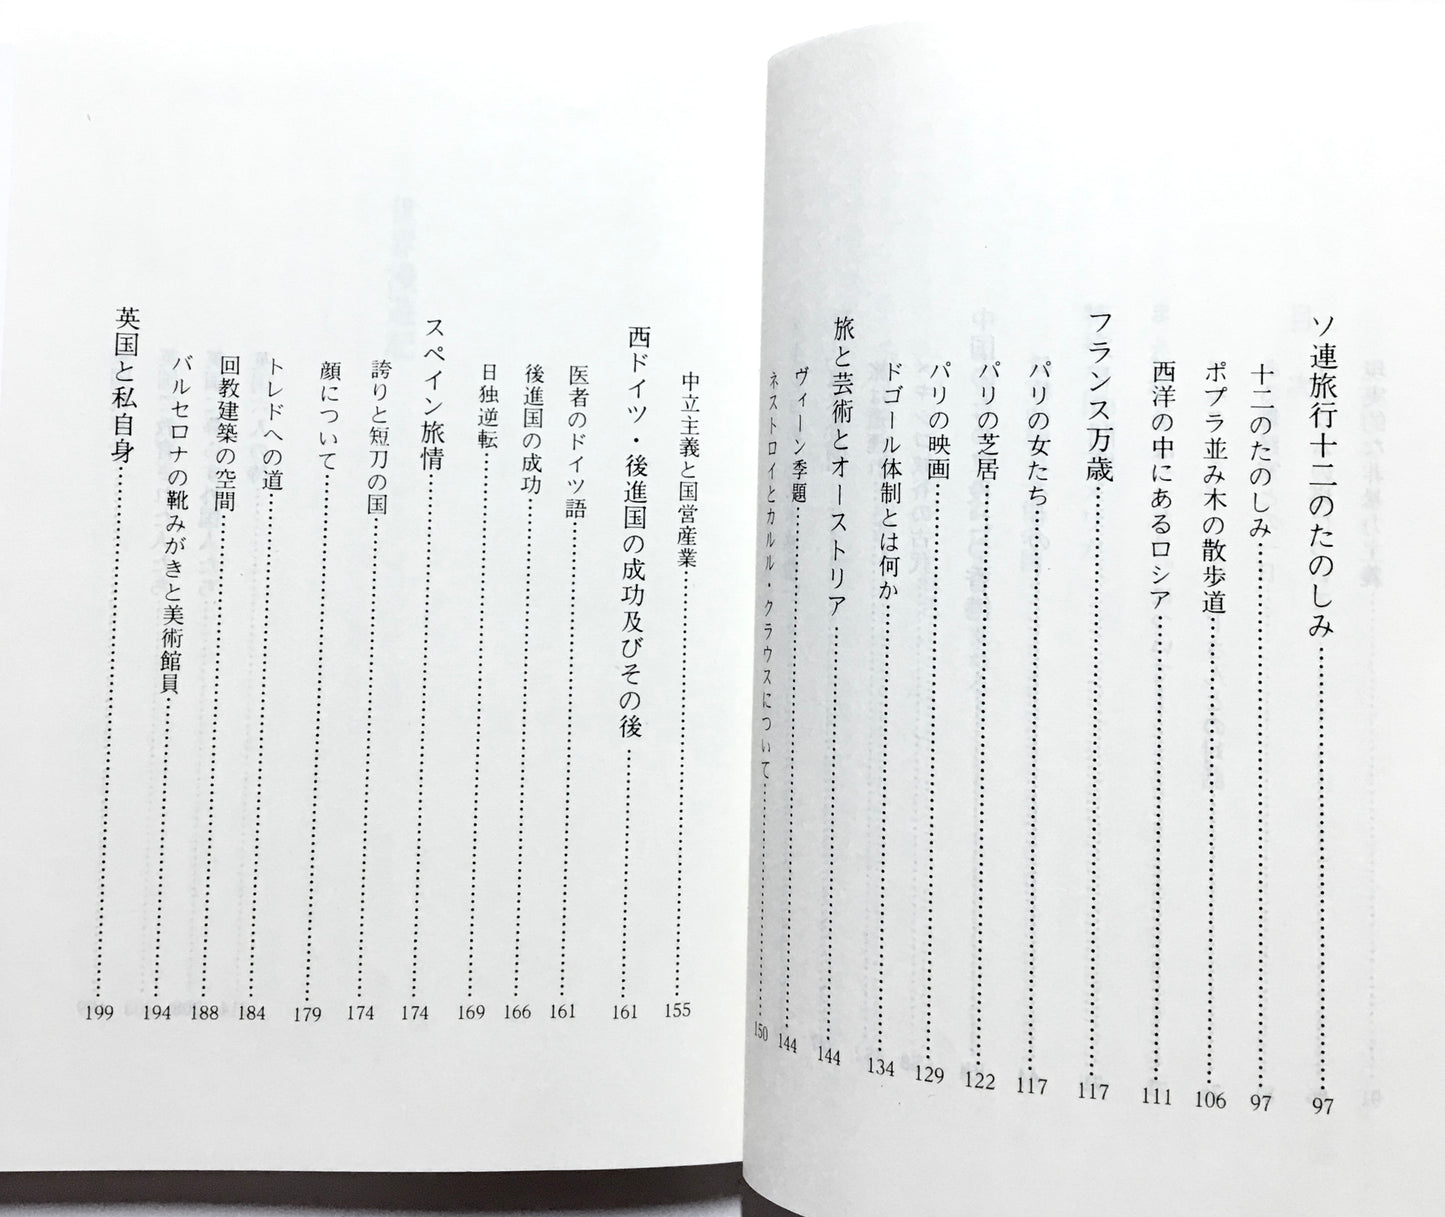 ソ連旅行十二のたのしみ……97
十二のたのしみ……97
ポプラ並み木の散歩道……106
西洋の中にあるロシア……111
フランス万歳……117
パリの女たち……117
パリの芝居……122
パリの映画……129
ドゴール体制とは何か……134
旅と芸術とオーストリア……144
ヴィーン季題……144
ネストロイとカルル・クラウスについて……150
中立主義と国営産業……155
西ドイツ・後進国の成功及びその後……161
医者のドイツ語……161
後進国の成功……166
日独逆転……169
スペイン旅情……174
誇りと短刀の国……174
顔について……179
トレドへの道……184
回教建築の空間……188
バルセロナの靴みがきと美術館員……194
英国と私自身……199